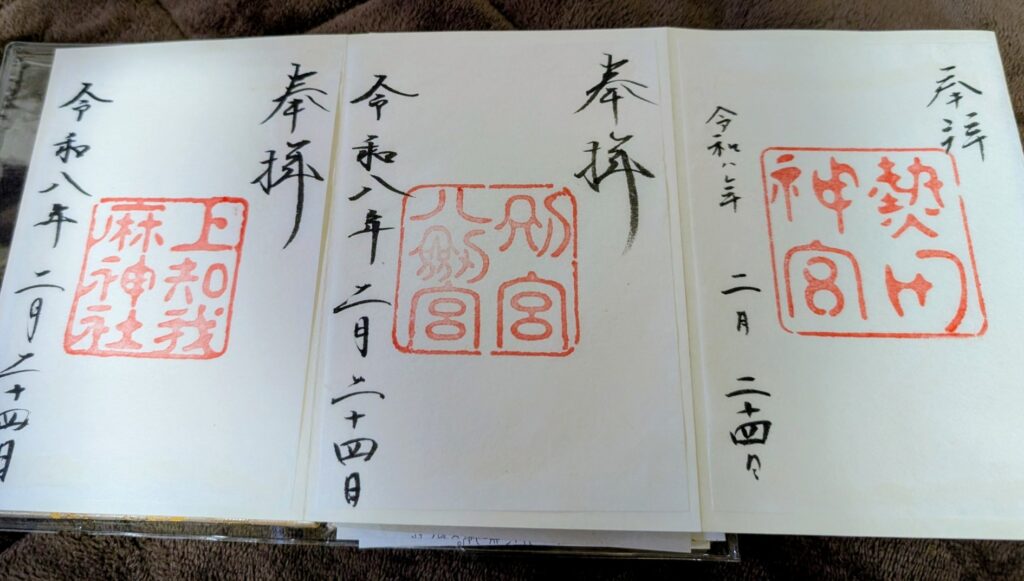 奉拝
熱田
神宮
令和八年 二月 二十四日
奉拝
別宮
八剱宮
令和八年 二月 二十四日
奉拝
上知我
麻神社
令和八年 二月 二十四日